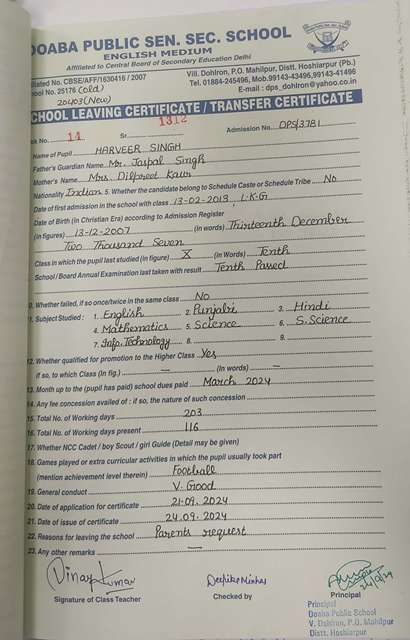 DOABA PUBLIC SEN. SEC. SCHOOL
ENGLISH MEDIUM
Affiliated to Central Board of Secondary Education Delhi
iliated No. CBSE/AFF/1630416 / 2007
hool No. 25176 (old)
20403 (New)
Vill. Dohlron, P.O. Mahilpur, Distt. Hoshiarpur (Pb.)
Tel. 01884-245496, Mob.99143-43496,99143-41496
E-mail : dps_dohlron@yahoo.com
CHOOL LEAVING CERTIFICATE / TRANSFER CERTIFICATE
ok No. 14 Sr. 1312 Admission No. DPS/3781
Name of Pupil HARVEER SINGH
Father's Guardian Name Mr. Jaspal Singh
Mother's Name Mrs. Dilpreet Kaur
Nationality Indian 5. Whether the candidate belong to Schedule Caste or Schedule Tribe No
Date of first admission in the school with class 13-02-2013, L.K.G
Date of Birth (in Christian Era) according to Admission Register
(in figures) 13-12-2007 (in words) Thirteenth December
Two Thousand Seven
Class in which the pupil last studied (in figure) X (in Words) Tenth
School / Board Annual Examination last taken with result Tenth Passed
0. Whether failed, if so once/twice in the same class No
1. Subject Studied : 1. English 2. Punjabi 3. Hindi
4. Mathematics 5. Science 6. S.Science
7. Info. Technology 8. 9.
12. Whether qualified for promotion to the Higher Class Yes
if so, to which Class (in fig.) — (in words) —
13. Month up to the (pupil has paid) school dues paid March 2024
14. Any fee concession availed of : if so, the nature of such concession
15. Total No. of Working days 203
16. Total No. of Working days present 116
17. Whether NCC Cadet / boy Scout / girl Guide (Detail may be given)
18. Games played or extra curricular activities in which the pupil usually took part
(mention achievement level therein) Football
19. General conduct V. Good
20. Date of application for certificate 21-09-2024
21. Date of issue of certificate 24.09.2024
22. Reasons for leaving the school Parents request
23. Any other remarks —
Vinay Kumar
Signature of Class Teacher
Checked by
Principal
Principal
Doaba Public School
V. Dohlron, P.O. Mahilpur
Distt. Hoshiarpur